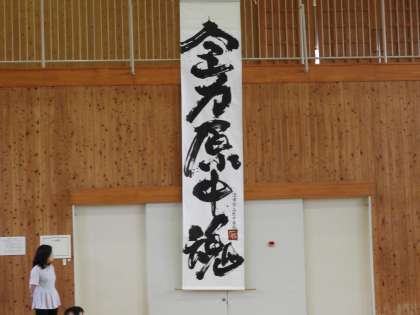 全力原中魂